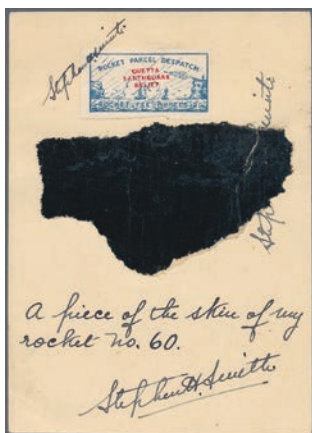 Stephen H. Smith
ROCKET PARCEL DESPATCH
QUETTA
EARTHQUAKE
RELIEF
Stephen H. Smith
A piece of the skin of my
rocket no. 60.
Stephen H. Smith